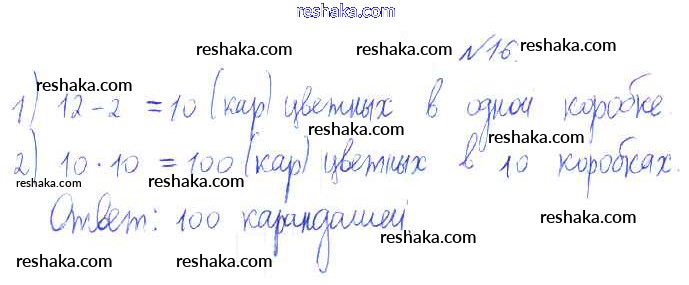 reshaka.com
reshaka.com reshaka.com №16.
reshaka.com reshaka.com
1) 12-2 = 10 (кар) цветных в одной коробке.
reshaka.com reshaka.com
2) 10·10 = 100 (кар) цветных в 10 коробках.
reshaka.com reshaka.com reshaka.com
Ответ: 100 карандашей.
reshaka.com reshaka.com
reshaka.com reshaka.com reshaka.com